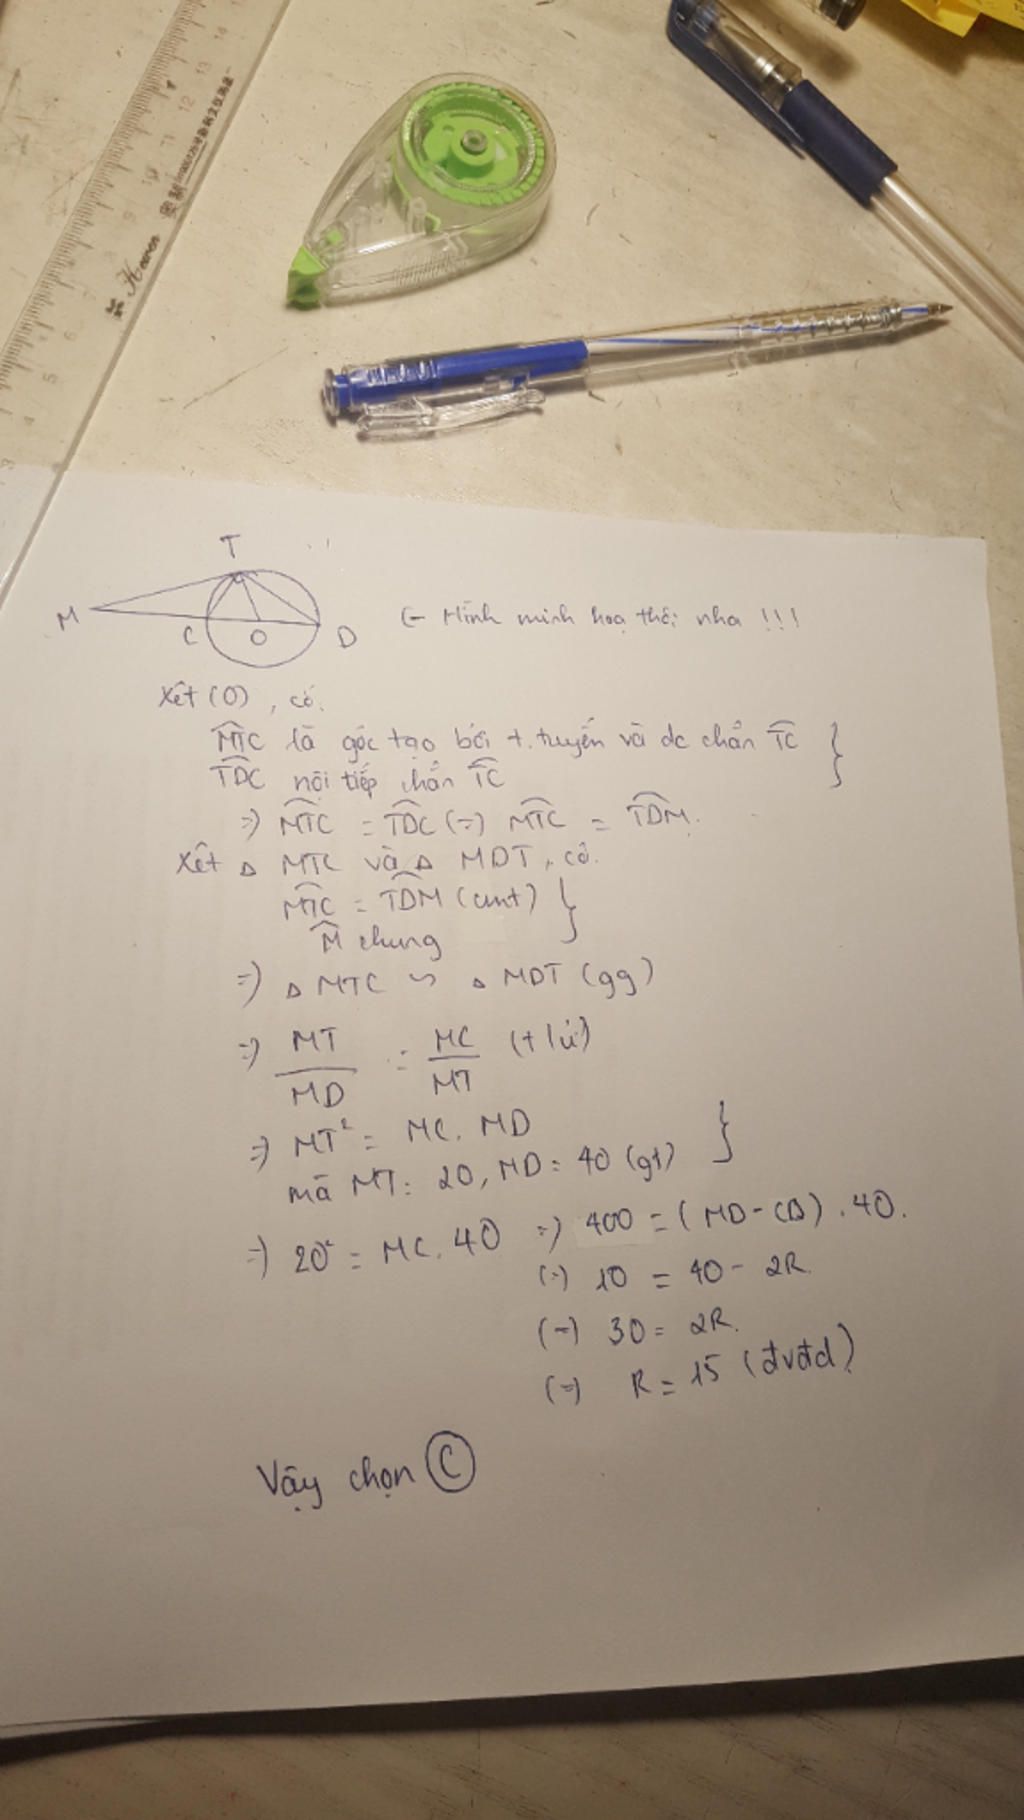 Hawen
T
M
C
O
D
<- Hình minh hoạ thôi nha !!!
Xét (O), có:
MTC là góc tạo bởi t.tuyến và dc chắn TC
TDC nội tiếp chắn TC
=> MTC = TDC (=) MTC = TDM.
Xét △ MTC và △ MDT, có:
MTC = TDM (cmt)
M chung
=> △ MTC ∽ △ MDT (gg)
=> MT/MD = MC/MT (tlứ)
=> MT² = MC. MD
mà MT= 20, MD= 40 (gt)
=> 20² = MC. 40 => 400 = (MD-CD) . 40.
(=) 10 = 40 - 2R.
(=) 30 = 2R.
(=) R = 15 (đvđd)
Vậy chọn C